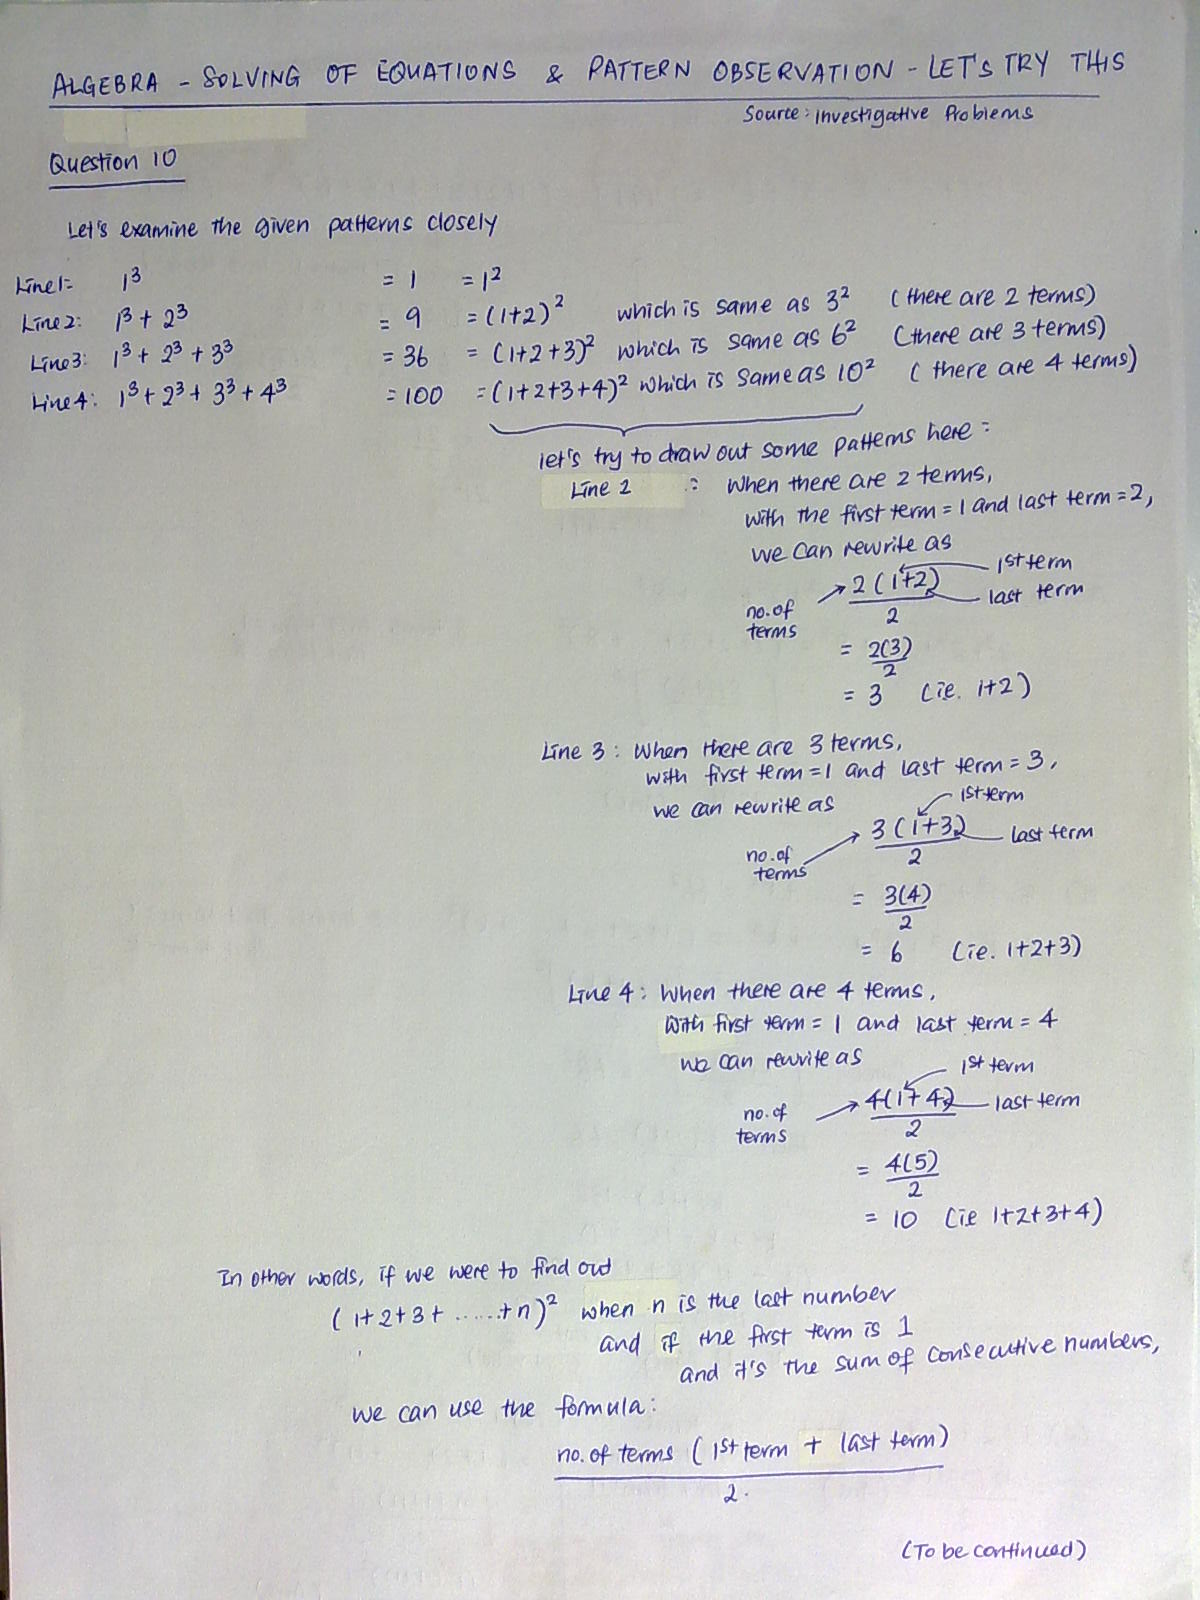 ALGEBRA - SOLVING OF EQUATIONS & PATTERN OBSERVATION - LET'S TRY THIS
Source: Investigative Problems
Question 10
Let's examine the given patterns closely
Line1: 1³ = 1 = 1²
Line2: 1³ + 2³ = 9 = (1+2)² which is same as 3² (there are 2 terms)
Line3: 1³ + 2³ + 3³ = 36 = (1+2+3)² which is same as 6² (there are 3 terms)
Line4: 1³ + 2³ + 3³ + 4³ = 100 = (1+2+3+4)² which is same as 10² (there are 4 terms)
let's try to draw out some patterns here:
Line 2 : When there are 2 terms,
with the first term = 1 and last term = 2,
we can rewrite as
1st term
2(1+2)
last term
no. of
terms
2
= 2(3)
2
= 3 (ie. 1+2)
Line 3: When there are 3 terms,
with first term = 1 and last term = 3,
we can rewrite as
1st term
3(1+3)
last term
no. of
terms
2
= 3(4)
2
= 6 (ie. 1+2+3)
Line 4: When there are 4 terms,
With first term = 1 and last term = 4
we can rewrite as
1st term
4(1+4)
last term
no. of
terms
2
= 4(5)
2
= 10 (ie 1+2+3+4)
In other words, if we were to find out
(1+2+3+ ......+n)² when n is the last number
and if the first term is 1
and it's the sum of consecutive numbers,
we can use the formula:
no. of terms (1st term + last term)
2.
(To be continued)